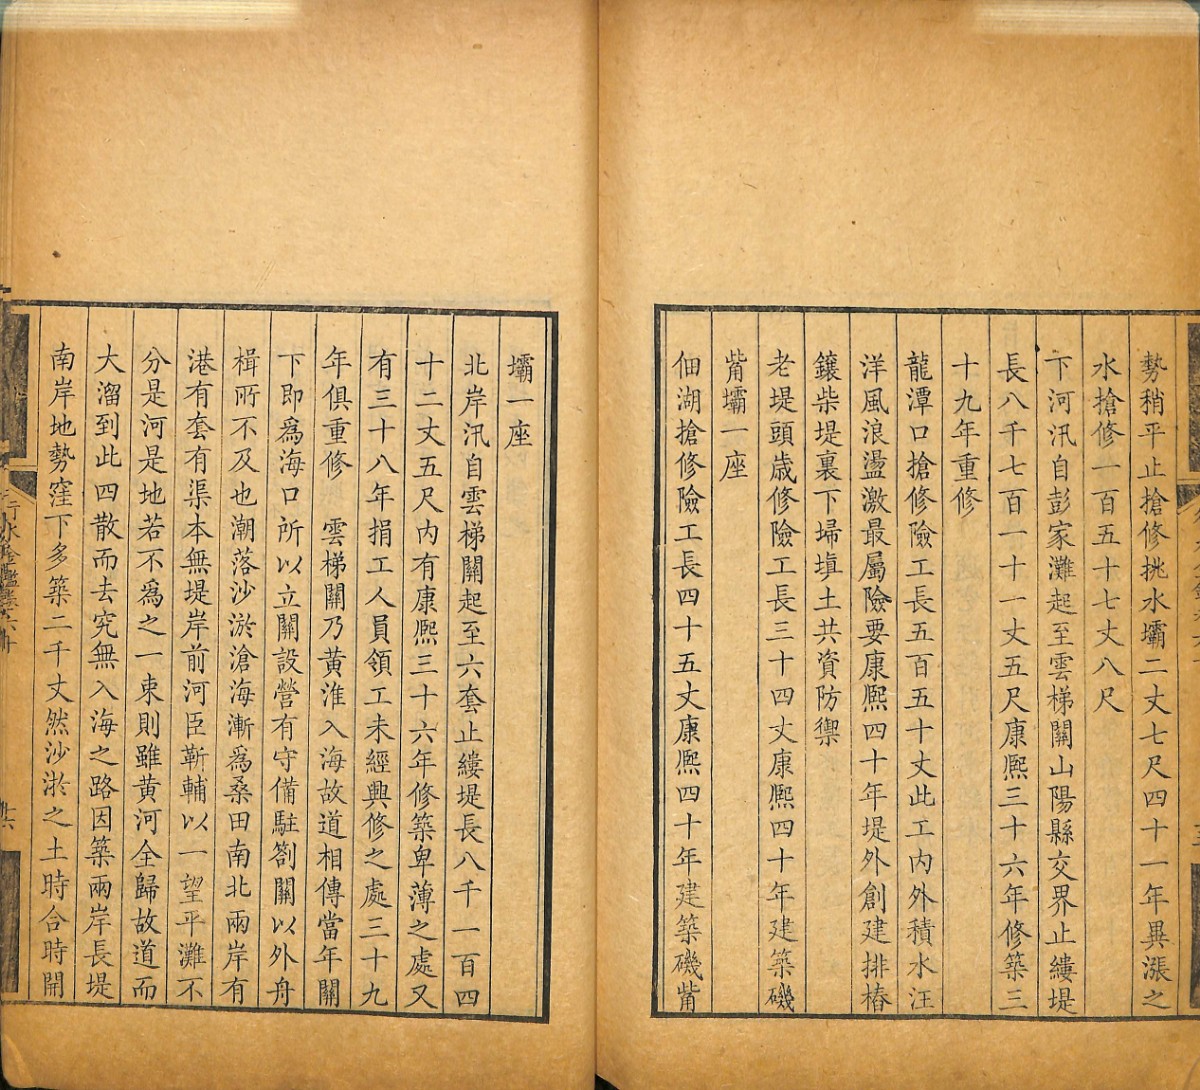 勢稍平止搶修挑水壩二丈七尺四十一年異漲之
水搶修一百五十七丈八尺
下河汛自彭家灘起至雲梯關山陽縣交界止縷堤
長八千七百一十一丈五尺康熙三十六年修築三
十九年重修
龍潭口搶修險工長五百五十丈此工内外積水汪
洋風浪盪激最屬險要康熙四十年堤外創建排樁
鑲柴堤裏下埽塡土共資防禦
老堤頭歲修險工長三十四丈康熙四十年建築磯
觜壩一座
佃湖搶修險工長四十五丈康熙四十年建築磯觜
壩一座
北岸汛自雲梯關起至六套止縷堤長八千一百四
十二丈五尺内有康熙三十六年修築卑薄之處又
有三十八年捐工人員領工未經興修之處三十九
年俱重修 雲梯關乃黄淮入海故道相傳當年關
下即爲海口所以立關設營有守備駐劄關以外舟
楫所不及也潮落沙淤滄海漸爲桑田南北兩岸有
港有套有渠本無堤岸前河臣靳輔以一望平灘不
分是河是地若不爲之一束則雖黄河全歸故道而
大溜到此四散而去究無入海之路因築兩岸長堤
南岸地勢窪下多築二千丈然沙淤之土時合時開
行水金鑑卷六十